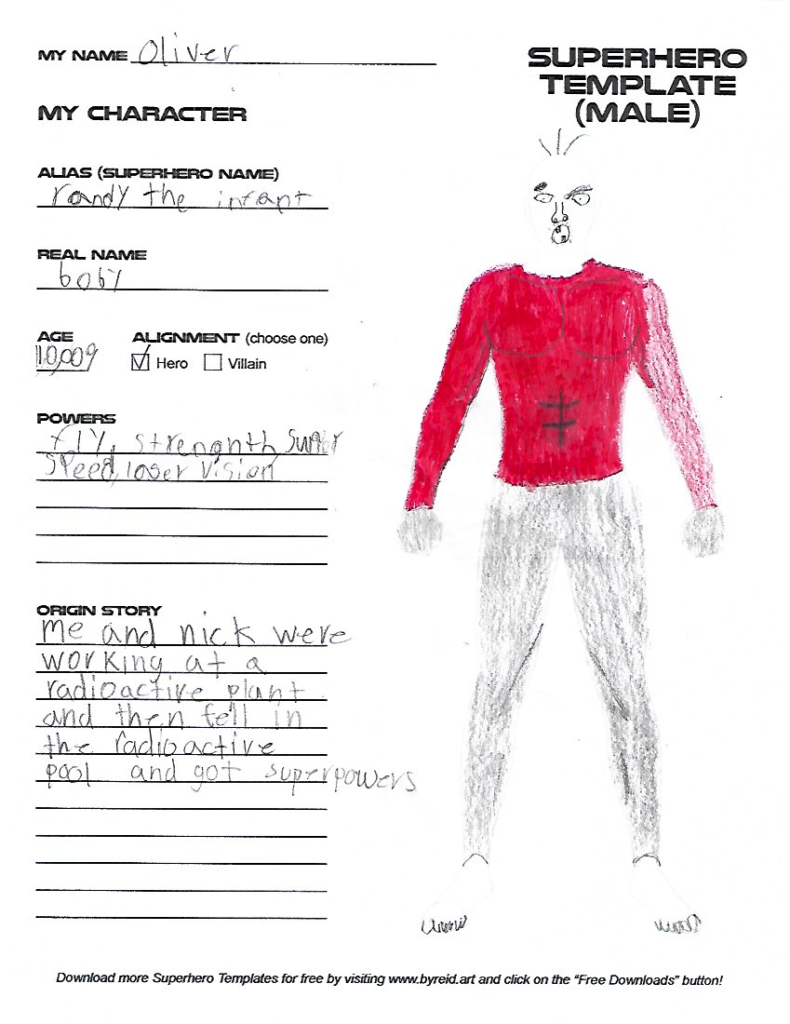 MY NAME Oliver
SUPERHERO
TEMPLATE
(MALE)
MY CHARACTER
ALIAS (SUPERHERO NAME)
randy the infant
REAL NAME
boby
AGE
ALIGNMENT (choose one)
10,009
Hero
Villain
POWERS
fly, strenqnth super
speed, laser vision
ORIGIN STORY
me and nick were
working at a
radioactive plant
and then fell in
the radioactive
pool and got superpowers
Download more Superhero Templates for free by visiting www.byreid.art and click on the "Free Downloads" button!